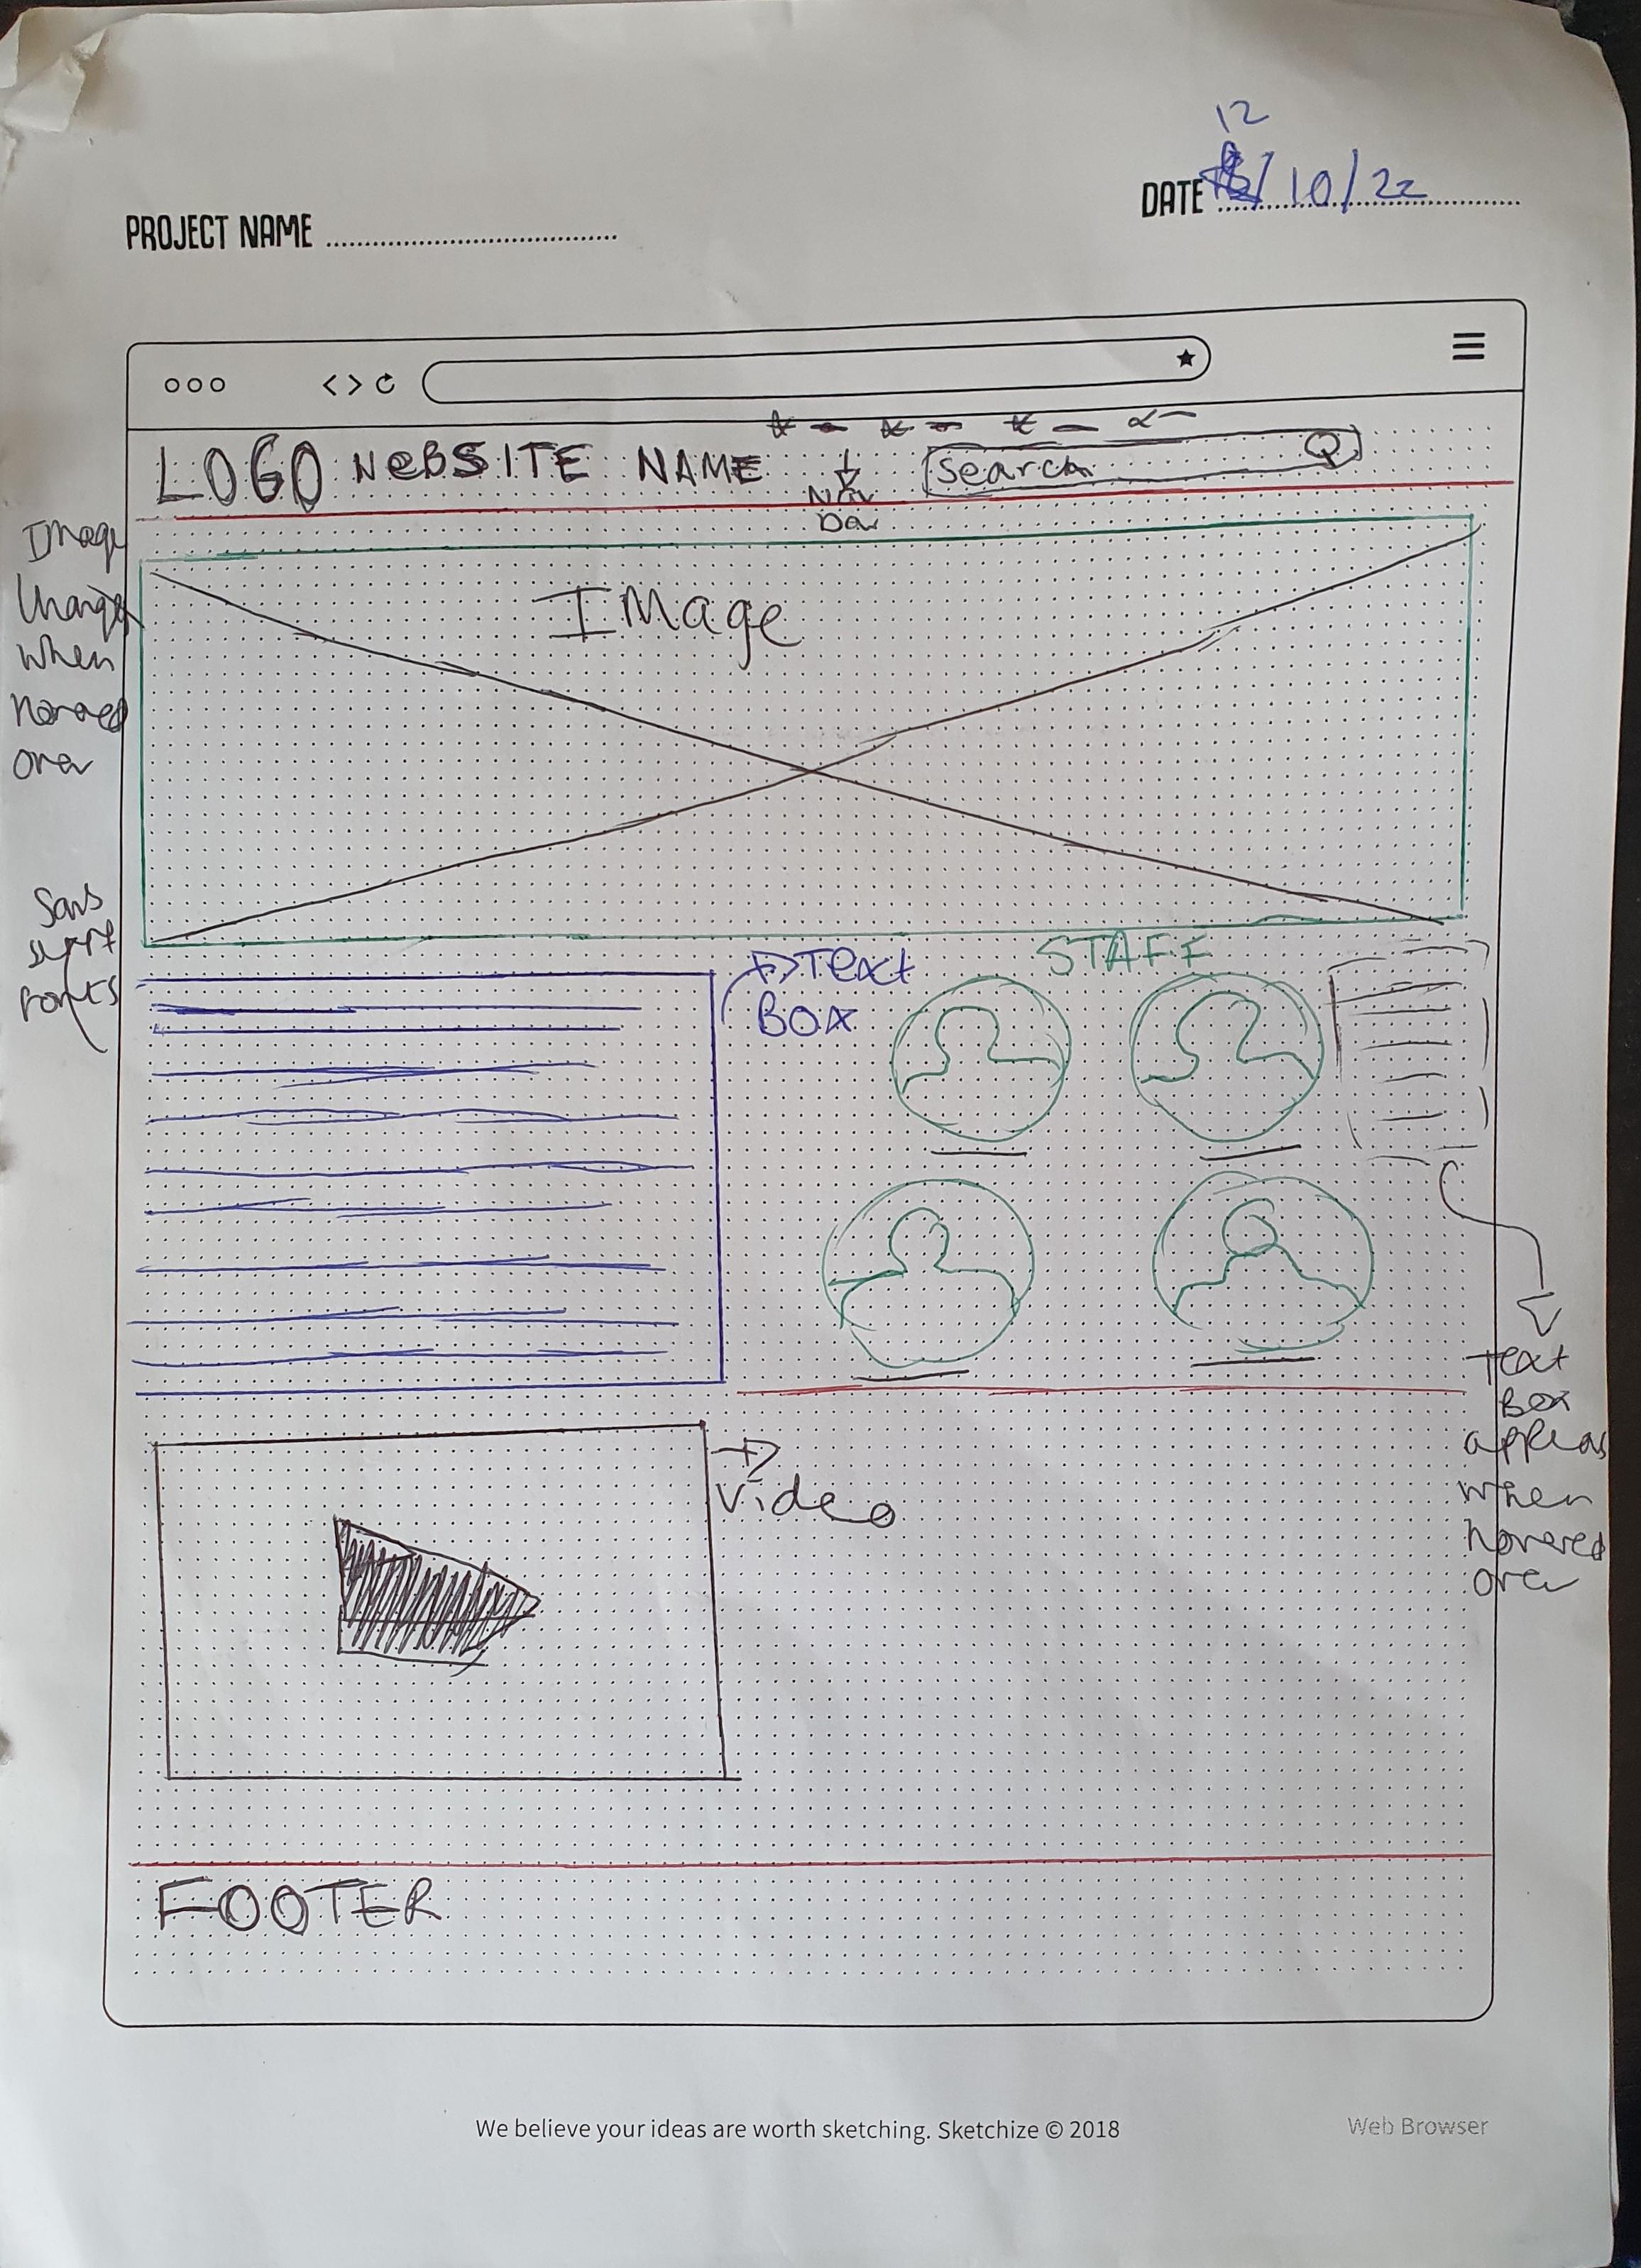 12
DATE /10/22
PROJECT NAME
LOGO WEBSITE NAME
Search
Nav
Bar
Image
Changes
when
hovered
over
IMage
Sans
serif
Fonts
Text
BOX
STAFF
Text
Box
appears
when
hovered
over
Video
FOOTER
We believe your ideas are worth sketching. Sketchize © 2018
Web Browser